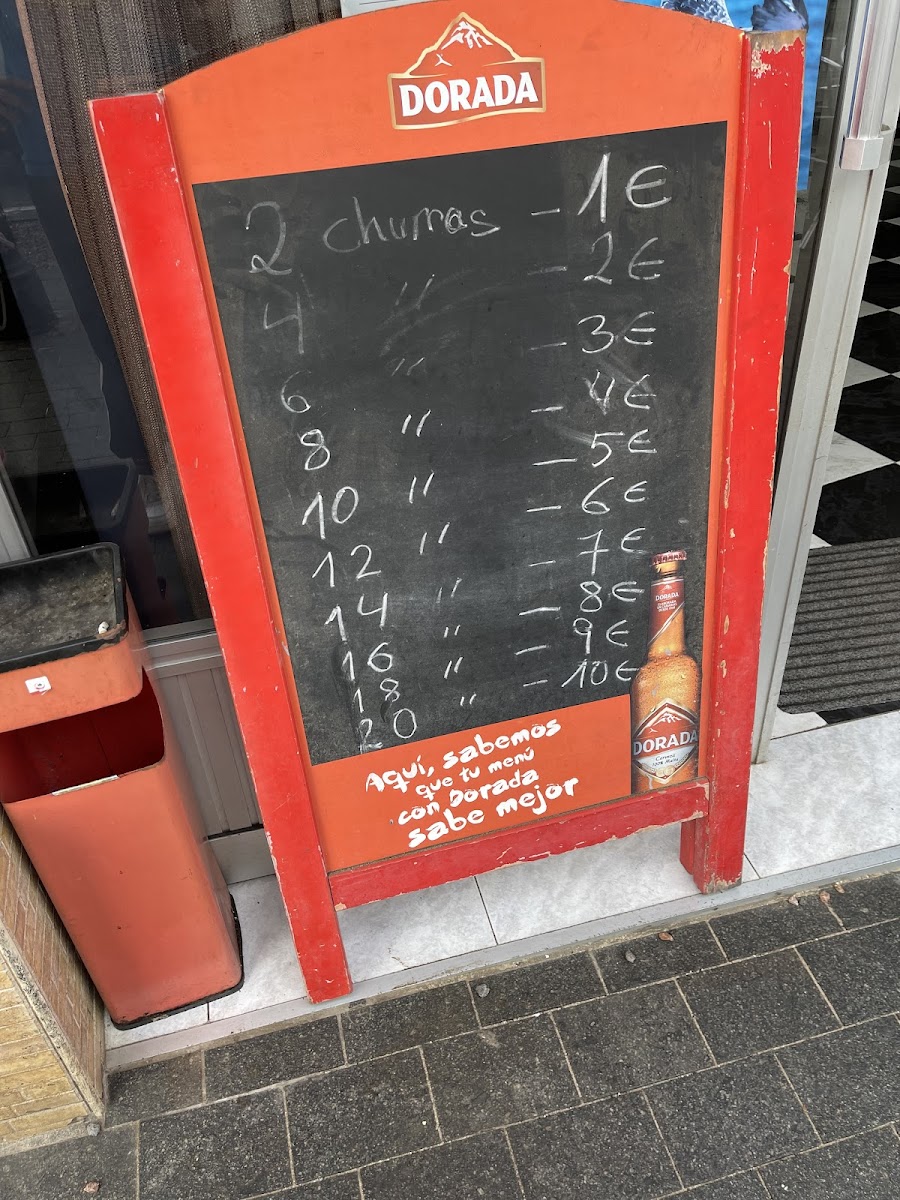 DORADA
2 churras - 1€
4 " - 2€
6 " - 3€
8 " - 4€
10 " - 5€
12 " - 6€
14 " - 7€
16 " - 8€
18 " - 9€
20 " - 10€
DORADA
DORADA
Aquí, sabemos
que tu menú
con Dorada
sabe mejor